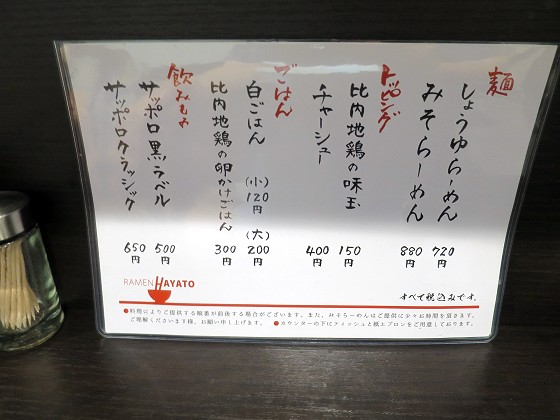 麺
しょうゆらーめん 720円
みそらーめん 880円
トッピング
比内地鶏の味玉 150円
チャーシュー 400円
ごはん
白ごはん (小)120円 (大)200円
比内地鶏の卵かけごはん 300円
飲みもの
サッポロ黒ラベル 500円
サッポロクラッシック 650円
RAMEN HAYATO
すべて税込みです。
●料理によりご提供する順番が前後する場合がございます。また、みそらーめんはご提供に少々お時間を頂きます。
ご理解くださいます様、お願い申し上げます。 ●カウンターの下にティッシュと紙エプロンをご用意しております。